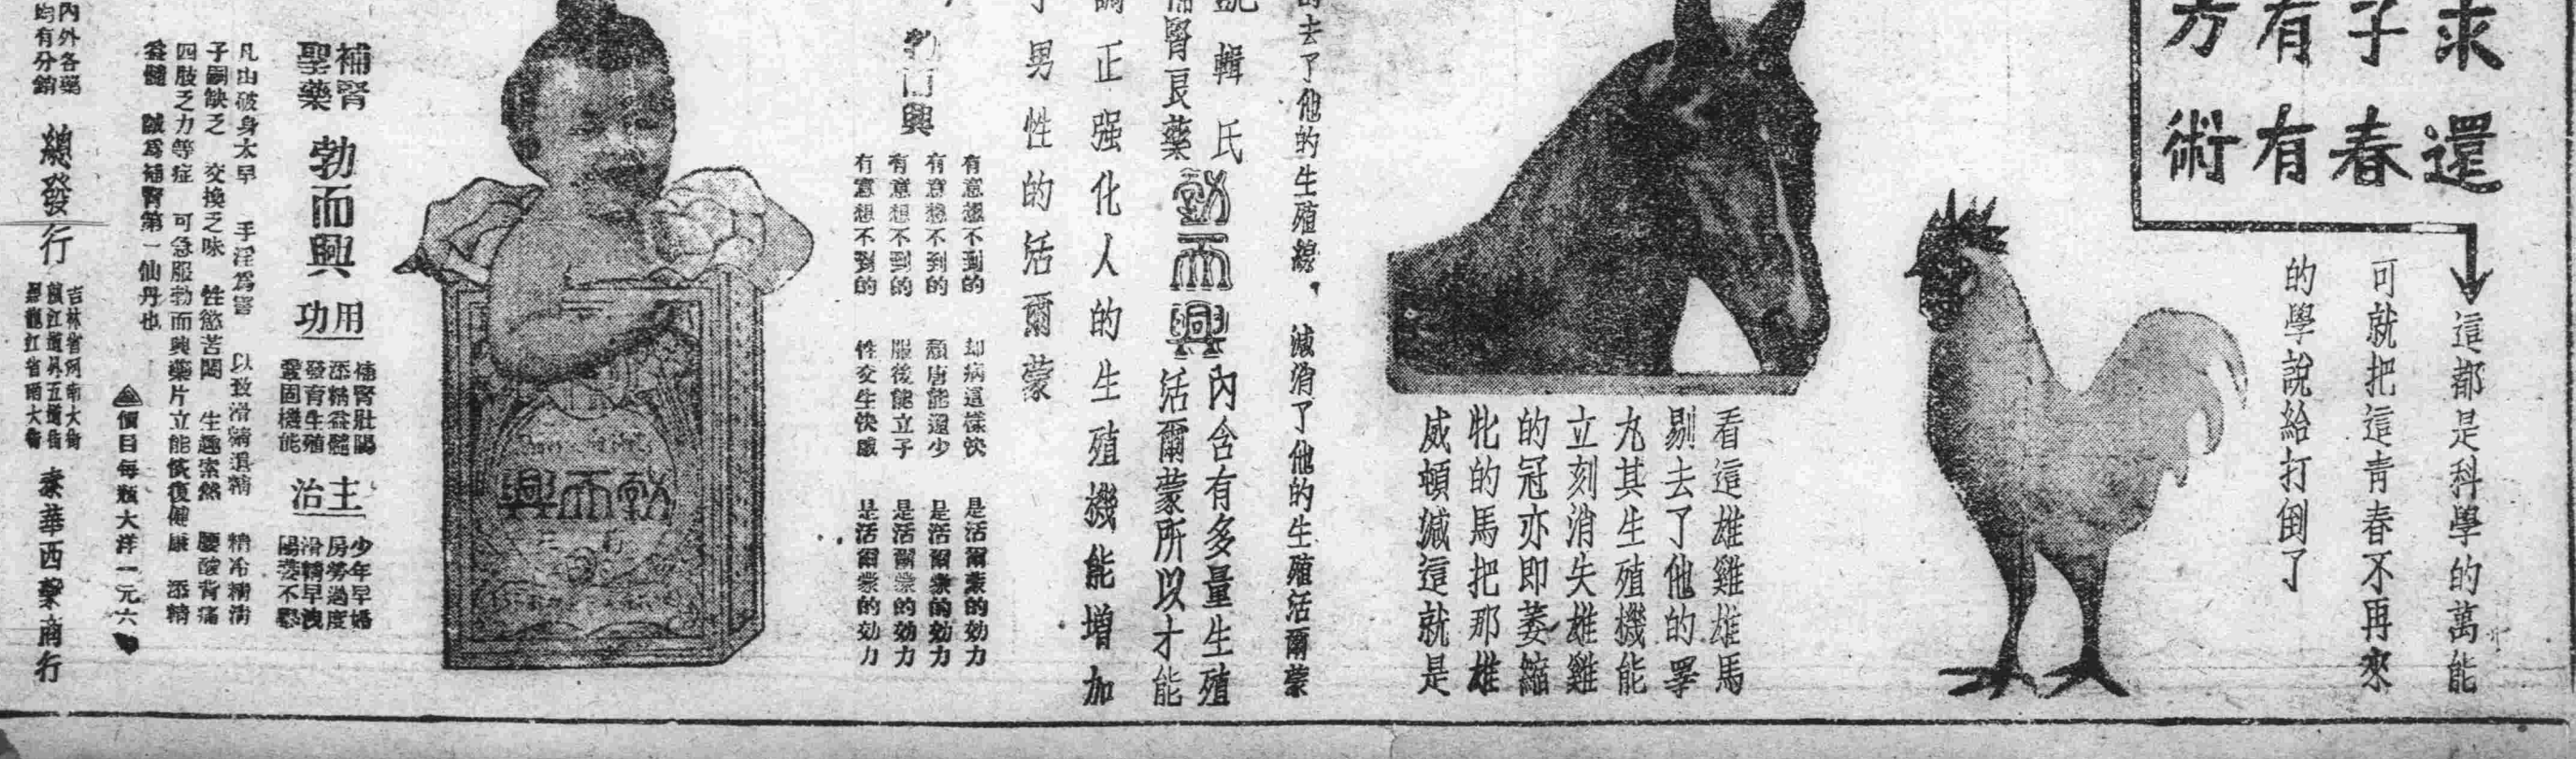 求還
子春
有有
方術
這都是科學的萬能
可就把這青春不再來
的學說給打倒了
看這雄雞雄馬
剔去了他的睪
丸其生殖機能
立刻消失雄雞
的冠亦即萎縮
牝的馬把那雄
威頓減這就是
去了他的生殖線、減消了他的生殖活爾蒙
凱輯氏
補腎良藥
勃而興
內含有多量生殖
活爾蒙所以才能
調正强化人的生殖機能增加
男性的活爾蒙
勃而興
有意想不到的 却病這樣快 是活爾蒙的効力
有意想不到的 頹唐能還少 是活爾蒙的効力
有意想不到的 服後能立子 是活爾蒙的効力
有意想不到的 性交生快感 是活爾蒙的効力
興而勃
補腎
聖藥
勃而興
用功
補腎壯陽
添精益髓
發育生殖
愛固機能
主治
少年早婚
房勞過度
滑精早洩
陽萎不舉
凡由破身太早 手淫爲害 以致滑精遺精 精冷精清
子嗣缺乏 交換之味 性慾苦悶 生趣索然 腰酸背痛
四肢乏力等症 可急服勃而興藥片立能恢復健康 添精
益髓 誠爲補腎第一仙丹也
價目每瓶大洋一元六
內外各藥
均有分銷
總發行
吉林省河南大街
濱江道外五道街
黑龍江省南大街
泰華西藥商行